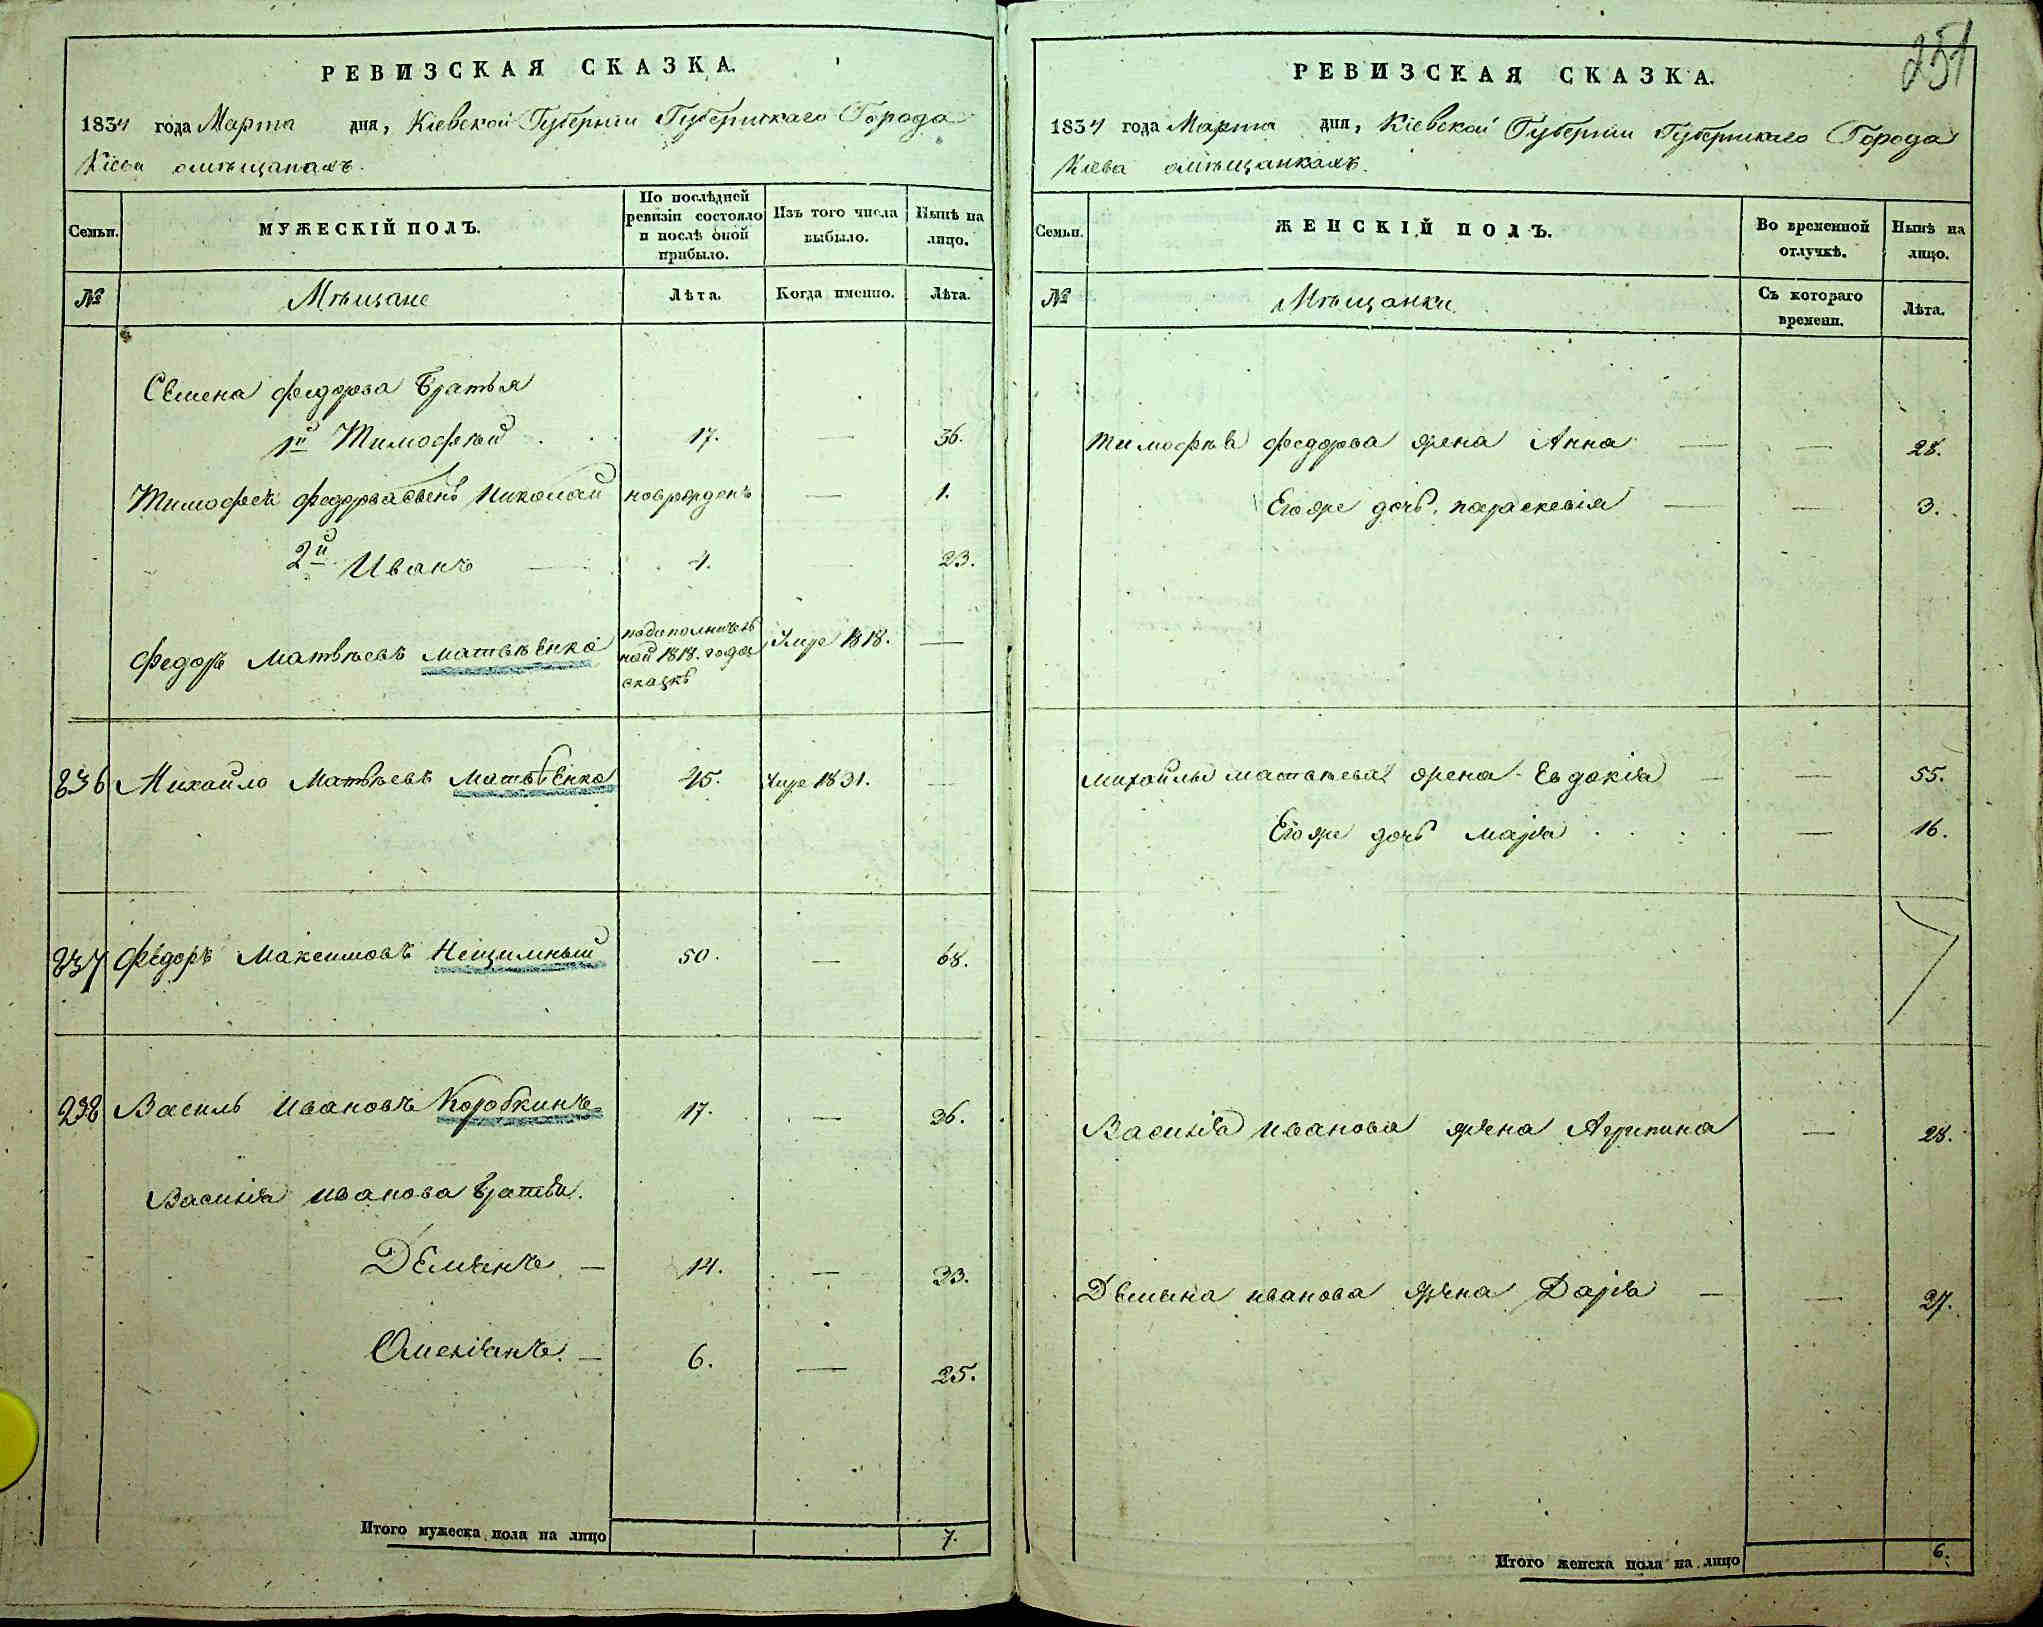 РЕВИЗСКАЯ СКАЗКА.
1834 года Марта дня, Кіевской Губерніи Губернскаго Города
Кіева омѣщанахъ.
Семьи.
МУЖЕСКІЙ ПОЛЪ.
По послѣдней ревизіи состояло и послѣ оной прибыло.
Изъ того числа выбыло.
Нынѣ на лицо.
№
Мѣщане
Лѣта.
Когда именно.
Лѣта.
Семена Федорова братья
1й Тимофей 17. — 36.
Тимофея Федорова сынъ Николай новорожденъ — 1.
2й Иванъ — 4. — 23.
Федоръ Матвѣевъ Матвѣенко подополнитель
ной 1818. года
сказкѣ
Умре 1818. —
236 Михайло Матвѣевъ Матвѣенко 45. Умре 1831. —
237 Федоръ Максимовъ Нещимный 50. — 68.
238 Василь Ивановъ Коробкинъ 17. — 36.
Василія Иванова братья.
Деміянъ — 14. — 33.
Омеліянъ. — 6. — 25.
Итого мужеска пола на лицо 7.
251
РЕВИЗСКАЯ СКАЗКА.
1834 года Марта дня, Кіевской Губерніи Губернскаго Города
Кіева омѣщанкахъ.
Семьи.
ЖЕНСКІЙ ПОЛЪ.
Во временной отлучкѣ.
Нынѣ на лицо.
№
Мѣщанки
Съ котораго времени.
Лѣта.
Тимофея Федорова жена Анна — — 28.
Егоже дочь Параскевія — — 3.
Михайлы Матвѣева жена Евдокія — — 55.
Егоже дочь Марія — 16.
Василія Иванова жена Агрипина — 28.
Деміяна Иванова жена Дарія — — 27.
Итого женска пола на лицо 6.